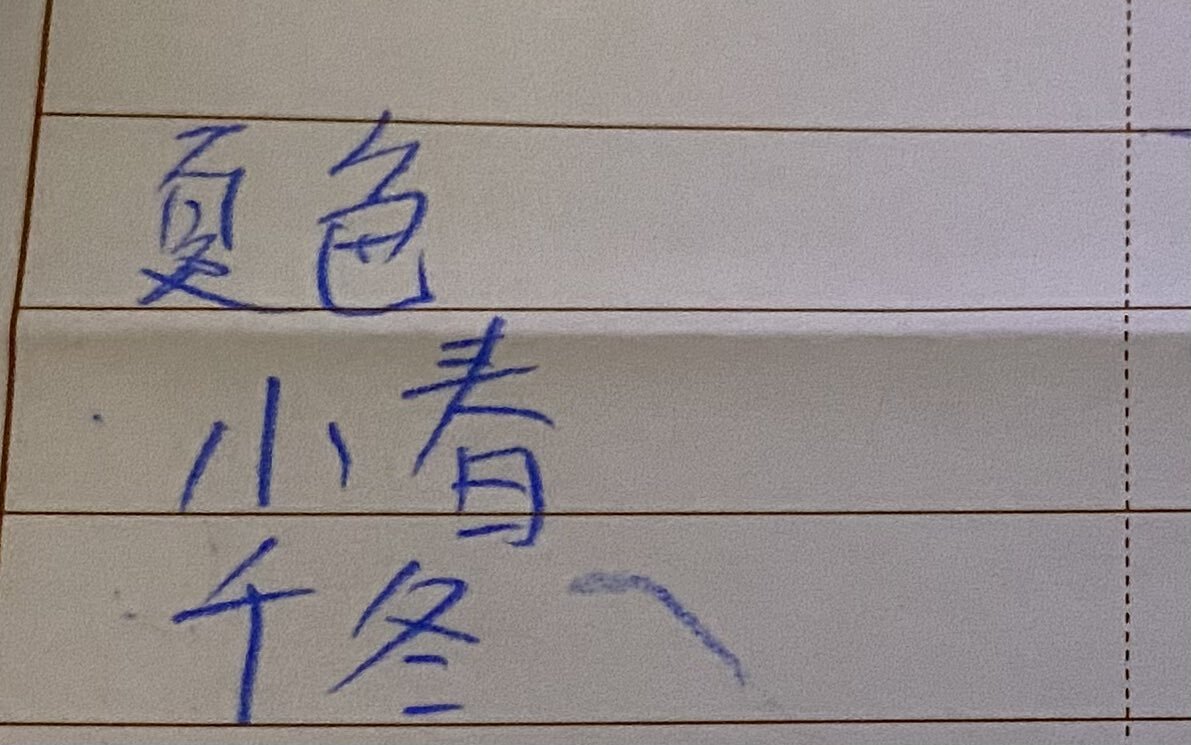 夏色
小春
千冬へ